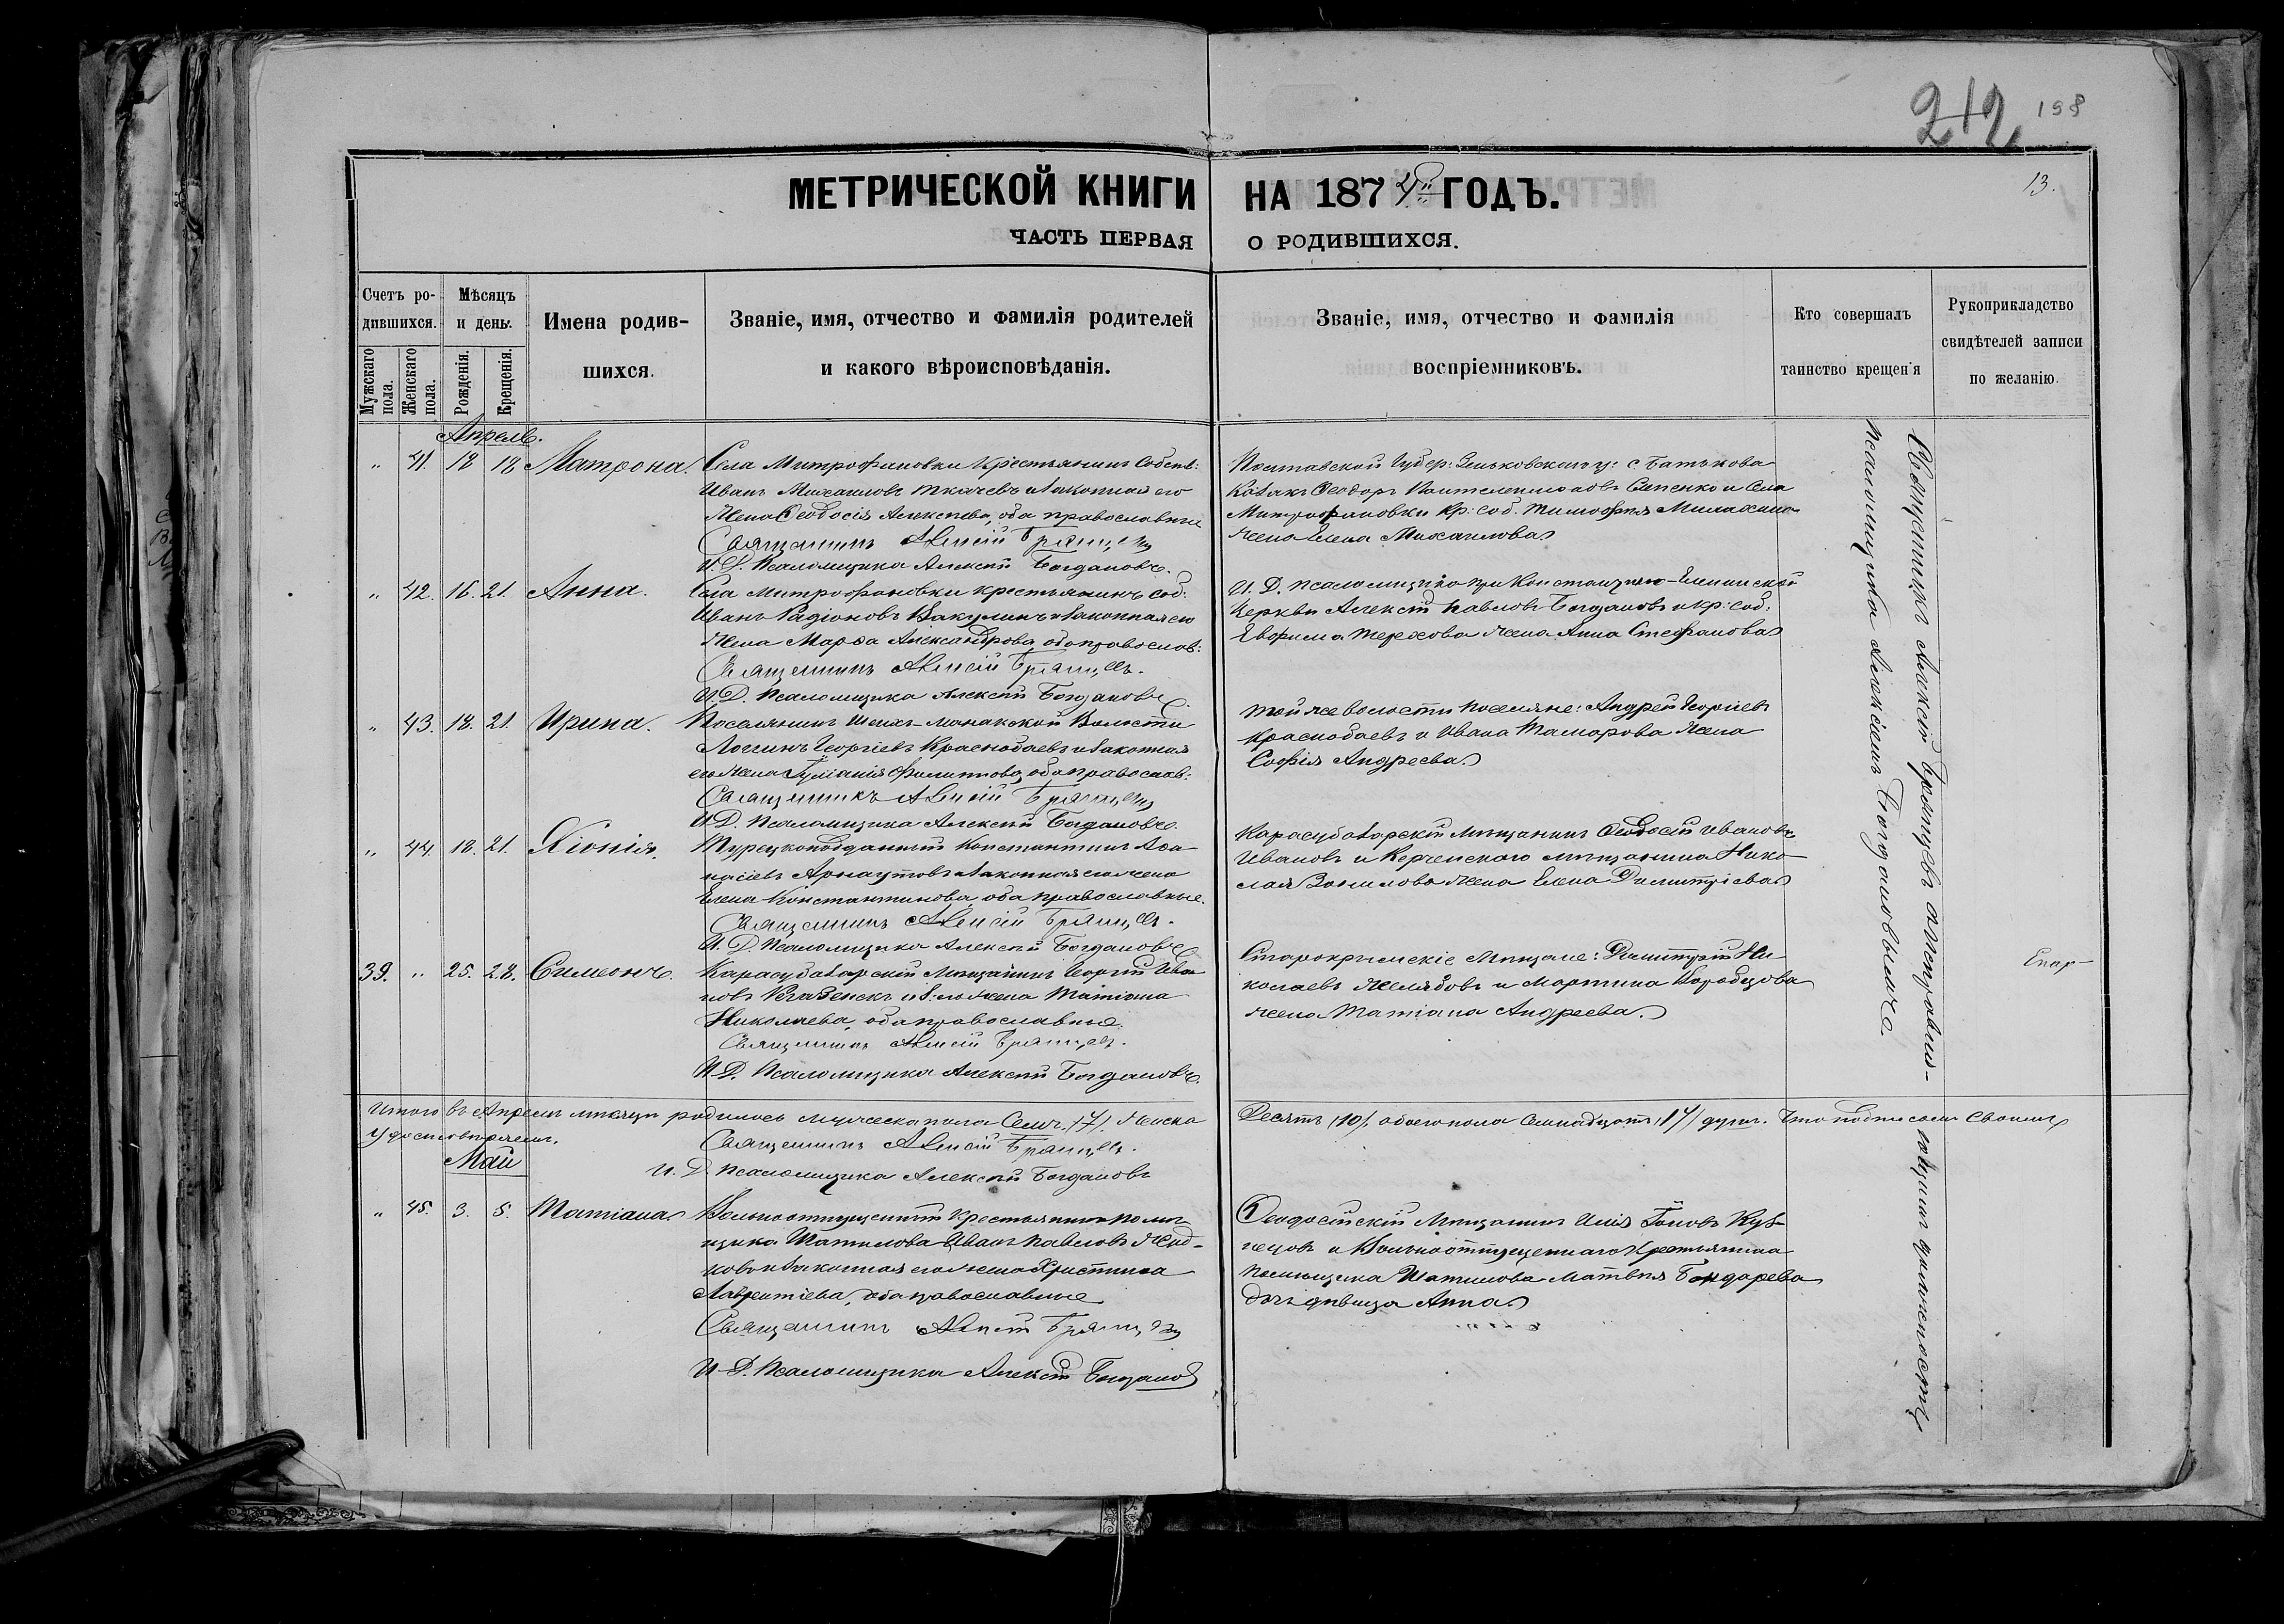 212 198
13.
МЕТРИЧЕСКОЙ КНИГИ НА 1874й ГОДЪ.
ЧАСТЬ ПЕРВАЯ О РОДИВШИХСЯ.
Счетъ ро-
дившихся.
Мужскаго пола.
Женскаго пола.
Мѣсяцъ
и день.
Рожденія.
Крещенія.
Имена родив-
шихся.
Званіе, имя, отчество и фамилія родителей
и какого вѣроисповѣданія.
Званіе, имя, отчество и фамилія
воспріемниковъ.
Кто совершалъ
таинство крещенія
Рукоприкладство
свидѣтелей записи
по желанію.
Апрель.
" 41. 18 18 Матрона. Села Митрофановки Крестьянинъ Собств:
Иванъ Михаиловъ Ткачевъ и законная его
жена Ѳеодосія Алексѣева, оба православные
Священникъ Алексій Брянцевъ
И. Д. Псаломщика Алексѣй Богдановъ.
Полтавской Губер: Зеньковскаго у: с. Батькова
Козакъ Ѳеодоръ Пантелеимоновъ Сипенко и Села
Митрофановки кр: соб. Тимофея
жена Елена Михаилова
" 42. 16. 21. Анна. Села Митрофановки крестьянинъ соб:
Иванъ Радіоновъ Вакулинъ и законная его
жена Марѳа Александрова, оба православ:
Священникъ Алексій Брянцевъ.
И. Д. Псаломщика Алексѣй Богдановъ
И. Д. псаломщика при Константино-Еленинской
Церкви Алексѣй Павловъ Богдановъ и кр: соб:
Евфима Терехова жена Анна Стефанова
" 43. 18. 21. Ирина. Поселянинъ Шейхъ-Монакской Волости
Логинъ Георгіевъ Краснобаевъ и законная
его жена Гуліанія Филиппова, оба православ:
Священникъ Алексій Брянцевъ
И. Д. Псаломщика Алексѣй Богдановъ.
Той же волости поселяне: Андрей Георгіевъ
Краснобаевъ и Ивана Тамарова жена
Софія Андреева.
" 44. 18. 21. Хіонія. Турецкоподданный Константинъ Аѳа-
насіевъ Арнаутовъ законная его жена
Елена Константинова, оба православные.
Священникъ Алексій Брянцевъ.
И. Д. Псаломщика Алексѣй Богдановъ
Карасубазарскій мѣщанинъ Ѳеодосій Ивановъ
Ивановъ и Керченскаго мѣщанина Нико-
лая жена Елена Димитріева
39. " 25. 28. Симеонъ. Карасубазарскій Мѣщанинъ Георгій Ива-
новъ и з: его жена Татіана
Николаева, оба православные.
Священникъ Алексій Брянцевъ.
И. Д. Псаломщика Алексѣй Богдановъ.
Старокрымскіе Мѣщане: Димитрій Ни-
колаевъ Желябовъ и Мартина Воробцова
жена Татіана Андреева.
Священникъ Алексій Брянцевъ съ исправляю-
щимъ должность
псаломщика Алексіемъ Богдановымъ.
Итого въ Апрѣлѣ мѣсяцѣ родилось мужеска пола Семь /7/. Женска Десять /10/. обоего пола Семнадцать /17/ душъ. Что подписомъ своимъ
удостовѣряемъ.
Священникъ Алексій Брянцевъ.
И. Д. Псаломщика Алексѣй Богдановъ
Май
" 45. 3. 5. Татіана. Вольноотпущенный Крестьянинъ помѣ-
щика Шатилова Иванъ Павловъ
и законная его жена Христина
Лаврентіева, оба православные
Священникъ Алексій Брянцевъ
И. Д. Псаломщика Алексѣй Богдановъ
Ѳеодосійскій Мѣщанинъ Илія Куз-
нецовъ и Вольноотпущеннаго Крестьянина
Помѣщика Шатилова Матвѣя Бондарева
дочь дѣвица Анна